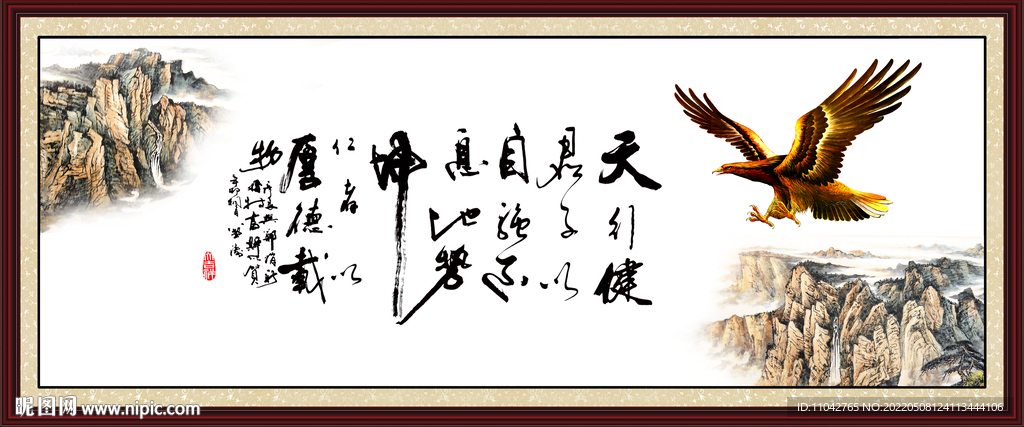 天行健
君子以
自强不
息地势
坤
仁者以
厚德载
物
昵图网 www.nipic.com
ID:11042765 NO.20220508124113444106